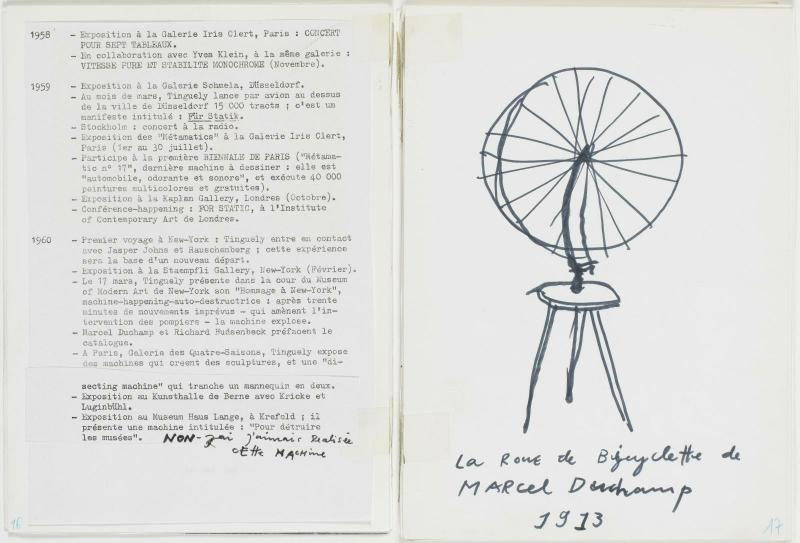 1958 - Exposition à la Galerie Iris Clert, Paris : CONCERT
POUR SEPT TABLEAUX.
- En collaboration avec Yves Klein, à la même galerie :
VITESSE PURE ET STABILITE MONOCHROME (Novembre).
1959 - Exposition à la Galerie Schmela, Düsseldorf.
- Au mois de mars, Tinguely lance par avion au dessus
de la ville de Düsseldorf 15 000 tracts ; c'est un
manifeste intitulé : Für Statik.
- Stockholm : concert à la radio.
- Exposition des "Métamatics" à la Galerie Iris Clert,
Paris (1er au 30 juillet).
- Participe à la première BIENNALE DE PARIS ("Métama-
tic n° 17", dernière machine à dessiner : elle est
"automobile, odorante et sonore", et exécute 40 000
peintures multicolores et gratuites).
- Exposition à la Kaplan Gallery, Londres (Octobre).
- Conférence-happening : FOR STATIC, à l'Institute
of Contemporary Art de Londres.
1960 - Premier voyage à New-York : Tinguely entre en contact
avec Jasper Johns et Rauschenberg ; cette expérience
sera la base d'un nouveau départ.
- Exposition à la Staempfli Gallery, New-York (Février).
- Le 17 mars, Tinguely présente dans la cour du Museum
of Modern Art de New-York son "Hommage à New-York",
machine-happening-auto-destructrice : après trente
minutes de mouvements imprévus - qui amènent l'in-
tervention des pompiers - la machine explose.
- Marcel Duchamp et Richard Huelsenbeck préfacent le
catalogue.
- A Paris, Galerie des Quatre-Saisons, Tinguely expose
des machines qui créent des sculptures, et une "di-
secting machine" qui tranche un mannequin en deux.
- Exposition au Kunsthalle de Berne avec Kricke et
Luginbühl.
- Exposition au Museum Haus Lange, à Krefeld ; il
présente une machine intitulée : "Pour détruire
les musées". NON - j'ai j'aimais realisée
cette MACHINE
16
La Roue de Bicyclette de
MARCEL Duchamp
1913
17